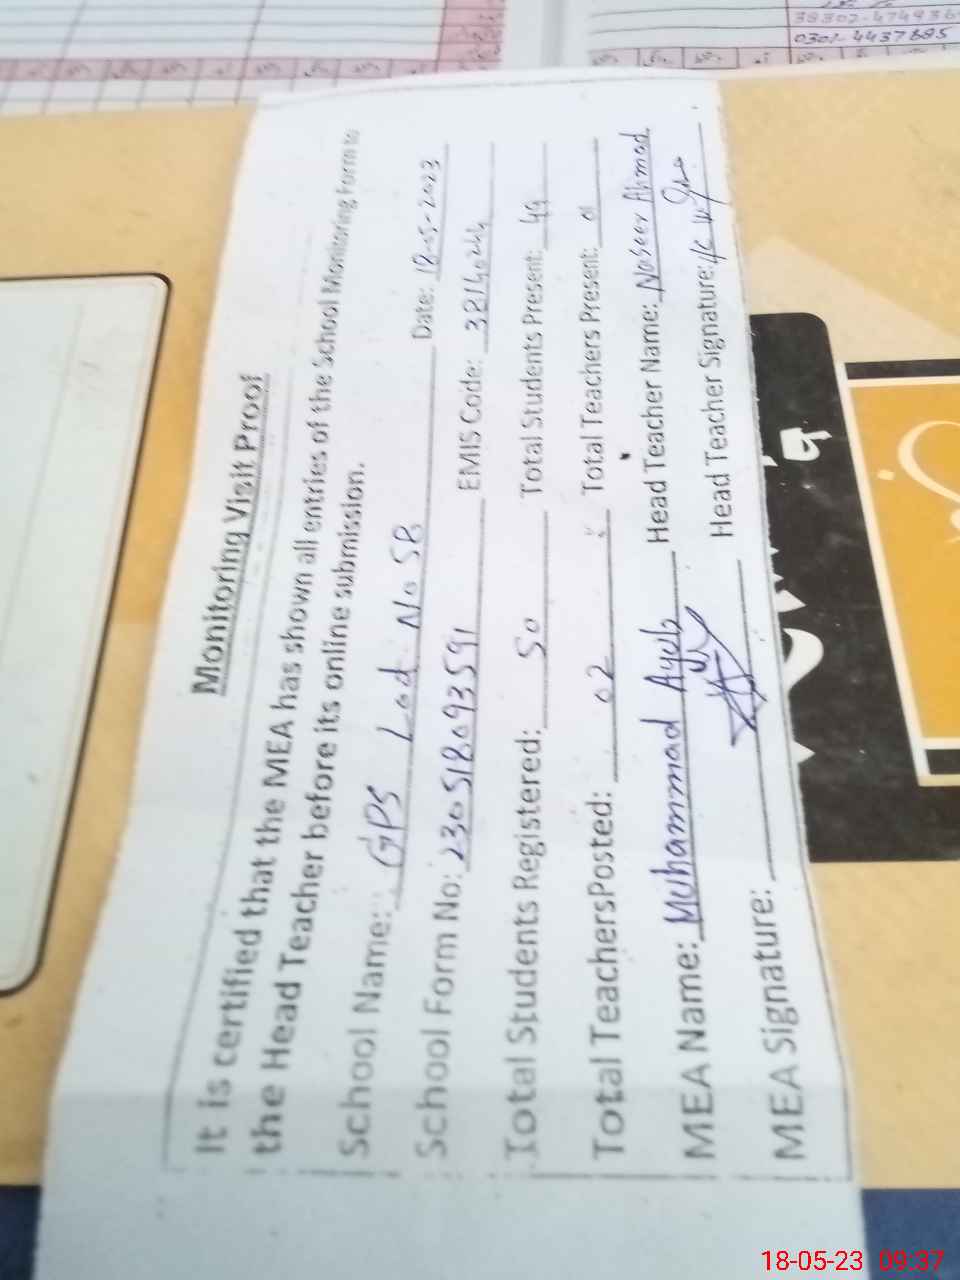 Monitoring Visit Proof
It is certified that the MEA has shown all entries of the School Monitoring Form to
the Head Teacher before its online submission.
School Name: GPS Lad No SB Date: 18-05-2023
School Form No: 230518093591 EMIS Code: 38140244
Total Students Registered: 50 Total Students Present: 49
Total TeachersPosted: 02 Total Teachers Present: 01
MEA Name: Muhammad Ayub Head Teacher Name: Naseer Ahmad
MEA Signature: Head Teacher Signature:
0302-4437685
18-05-23 09:37